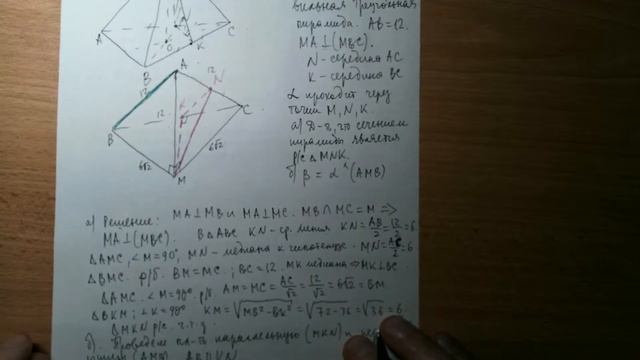 вильная треугольная
пирамида. AB=12.
MA⊥(MBC).
N - середина AC
K - середина BC
α проходит через
точки M, N, K.
а) Д-ть, что сечением
пирамиды является
р/с ΔMNK.
б) β = α^(AMB)
A
B
C
K
O
A
B
C
M
N
K
12
12
12
6√2
6√2
а) Решение: MA⊥MB и MA⊥MC. MB∩MC=M =>
MA⊥(MBC). В ΔABC KN-ср. линия KN=AB/2=12/2=6
ΔAMC, ∠M=90°, MN-медиана к гипотенузе. MN=AC/2=6
ΔBMC р/б. BM=MC; BC=12. MK медиана => MK⊥BC.
ΔAMC. ∠M=90° р/б. AM=MC=AC/√2=12/√2=6√2=BM.
ΔBKM; ∠K=90° KM=√MB²-BK²=√72-36=√36=6.
ΔMKN р/с. ч.т.д.
б). Проведем пл-ть параллельную (MKN) и
(AMB). AB||KN